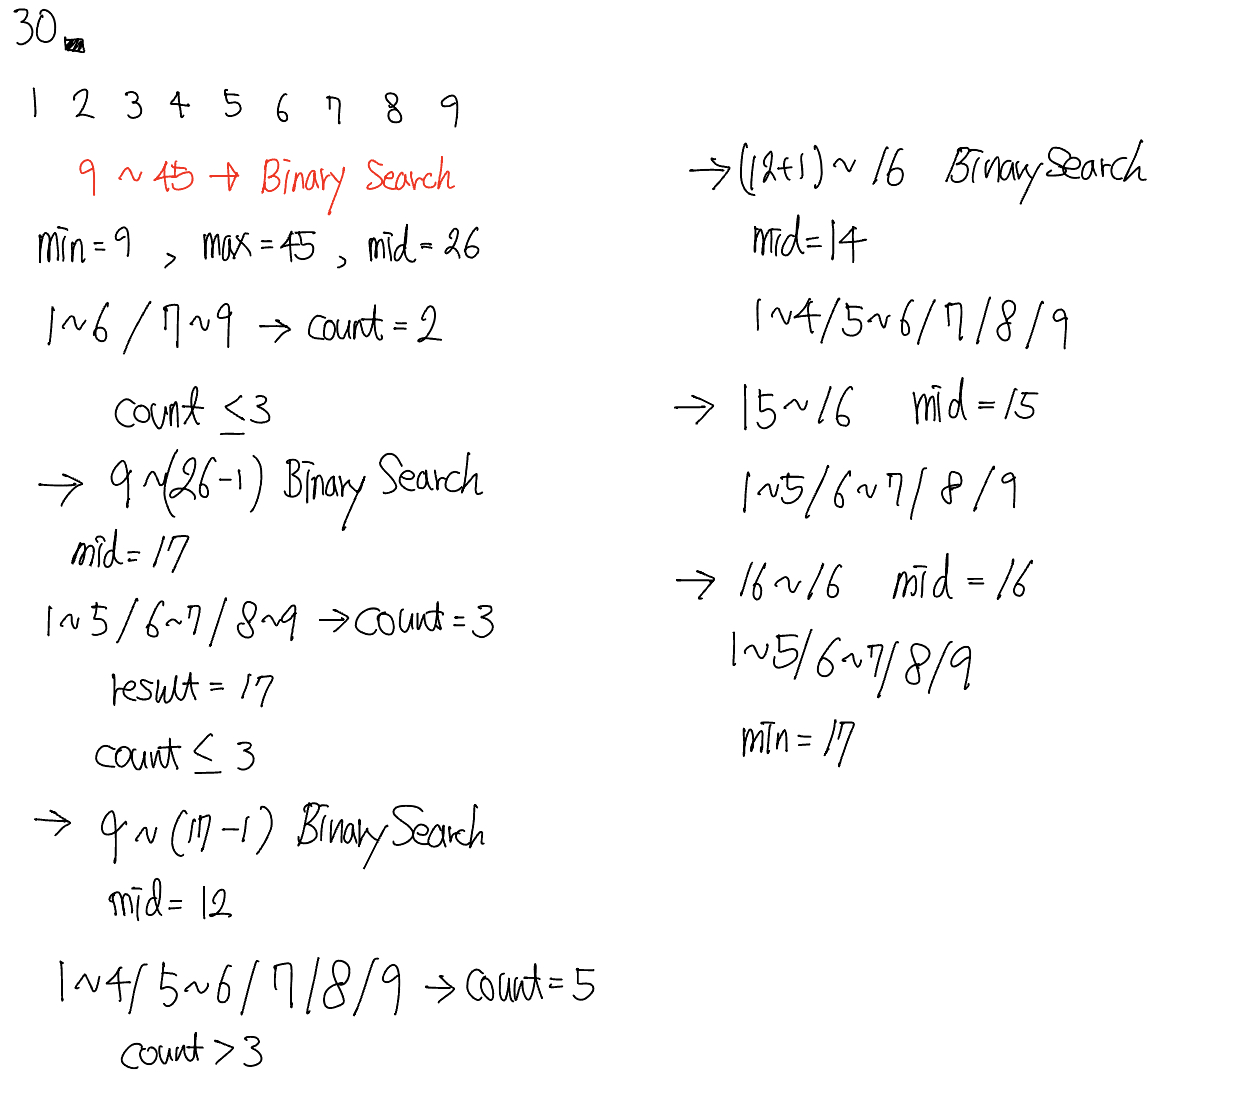 30
1 2 3 4 5 6 7 8 9
9 ~ 45 → Binary Search
min = 9 , max = 45 , mid = 26
1~6 / 7~9 → count = 2
count ≤ 3
→ 9 ~(26-1) Binary Search
mid = 17
1~5 / 6~7 / 8~9 → count = 3
result = 17
count ≤ 3
→ 9 ~ (17-1) Binary Search
mid = 12
1~4 / 5~6 / 7 / 8 / 9 → count = 5
count > 3
→ (12+1) ~ 16 Binary Search
mid = 14
1~4 / 5~6 / 7 / 8 / 9
→ 15 ~ 16 mid = 15
1~5 / 6~7 / 8 / 9
→ 16 ~ 16 mid = 16
1~5 / 6~7 / 8 / 9
min = 17